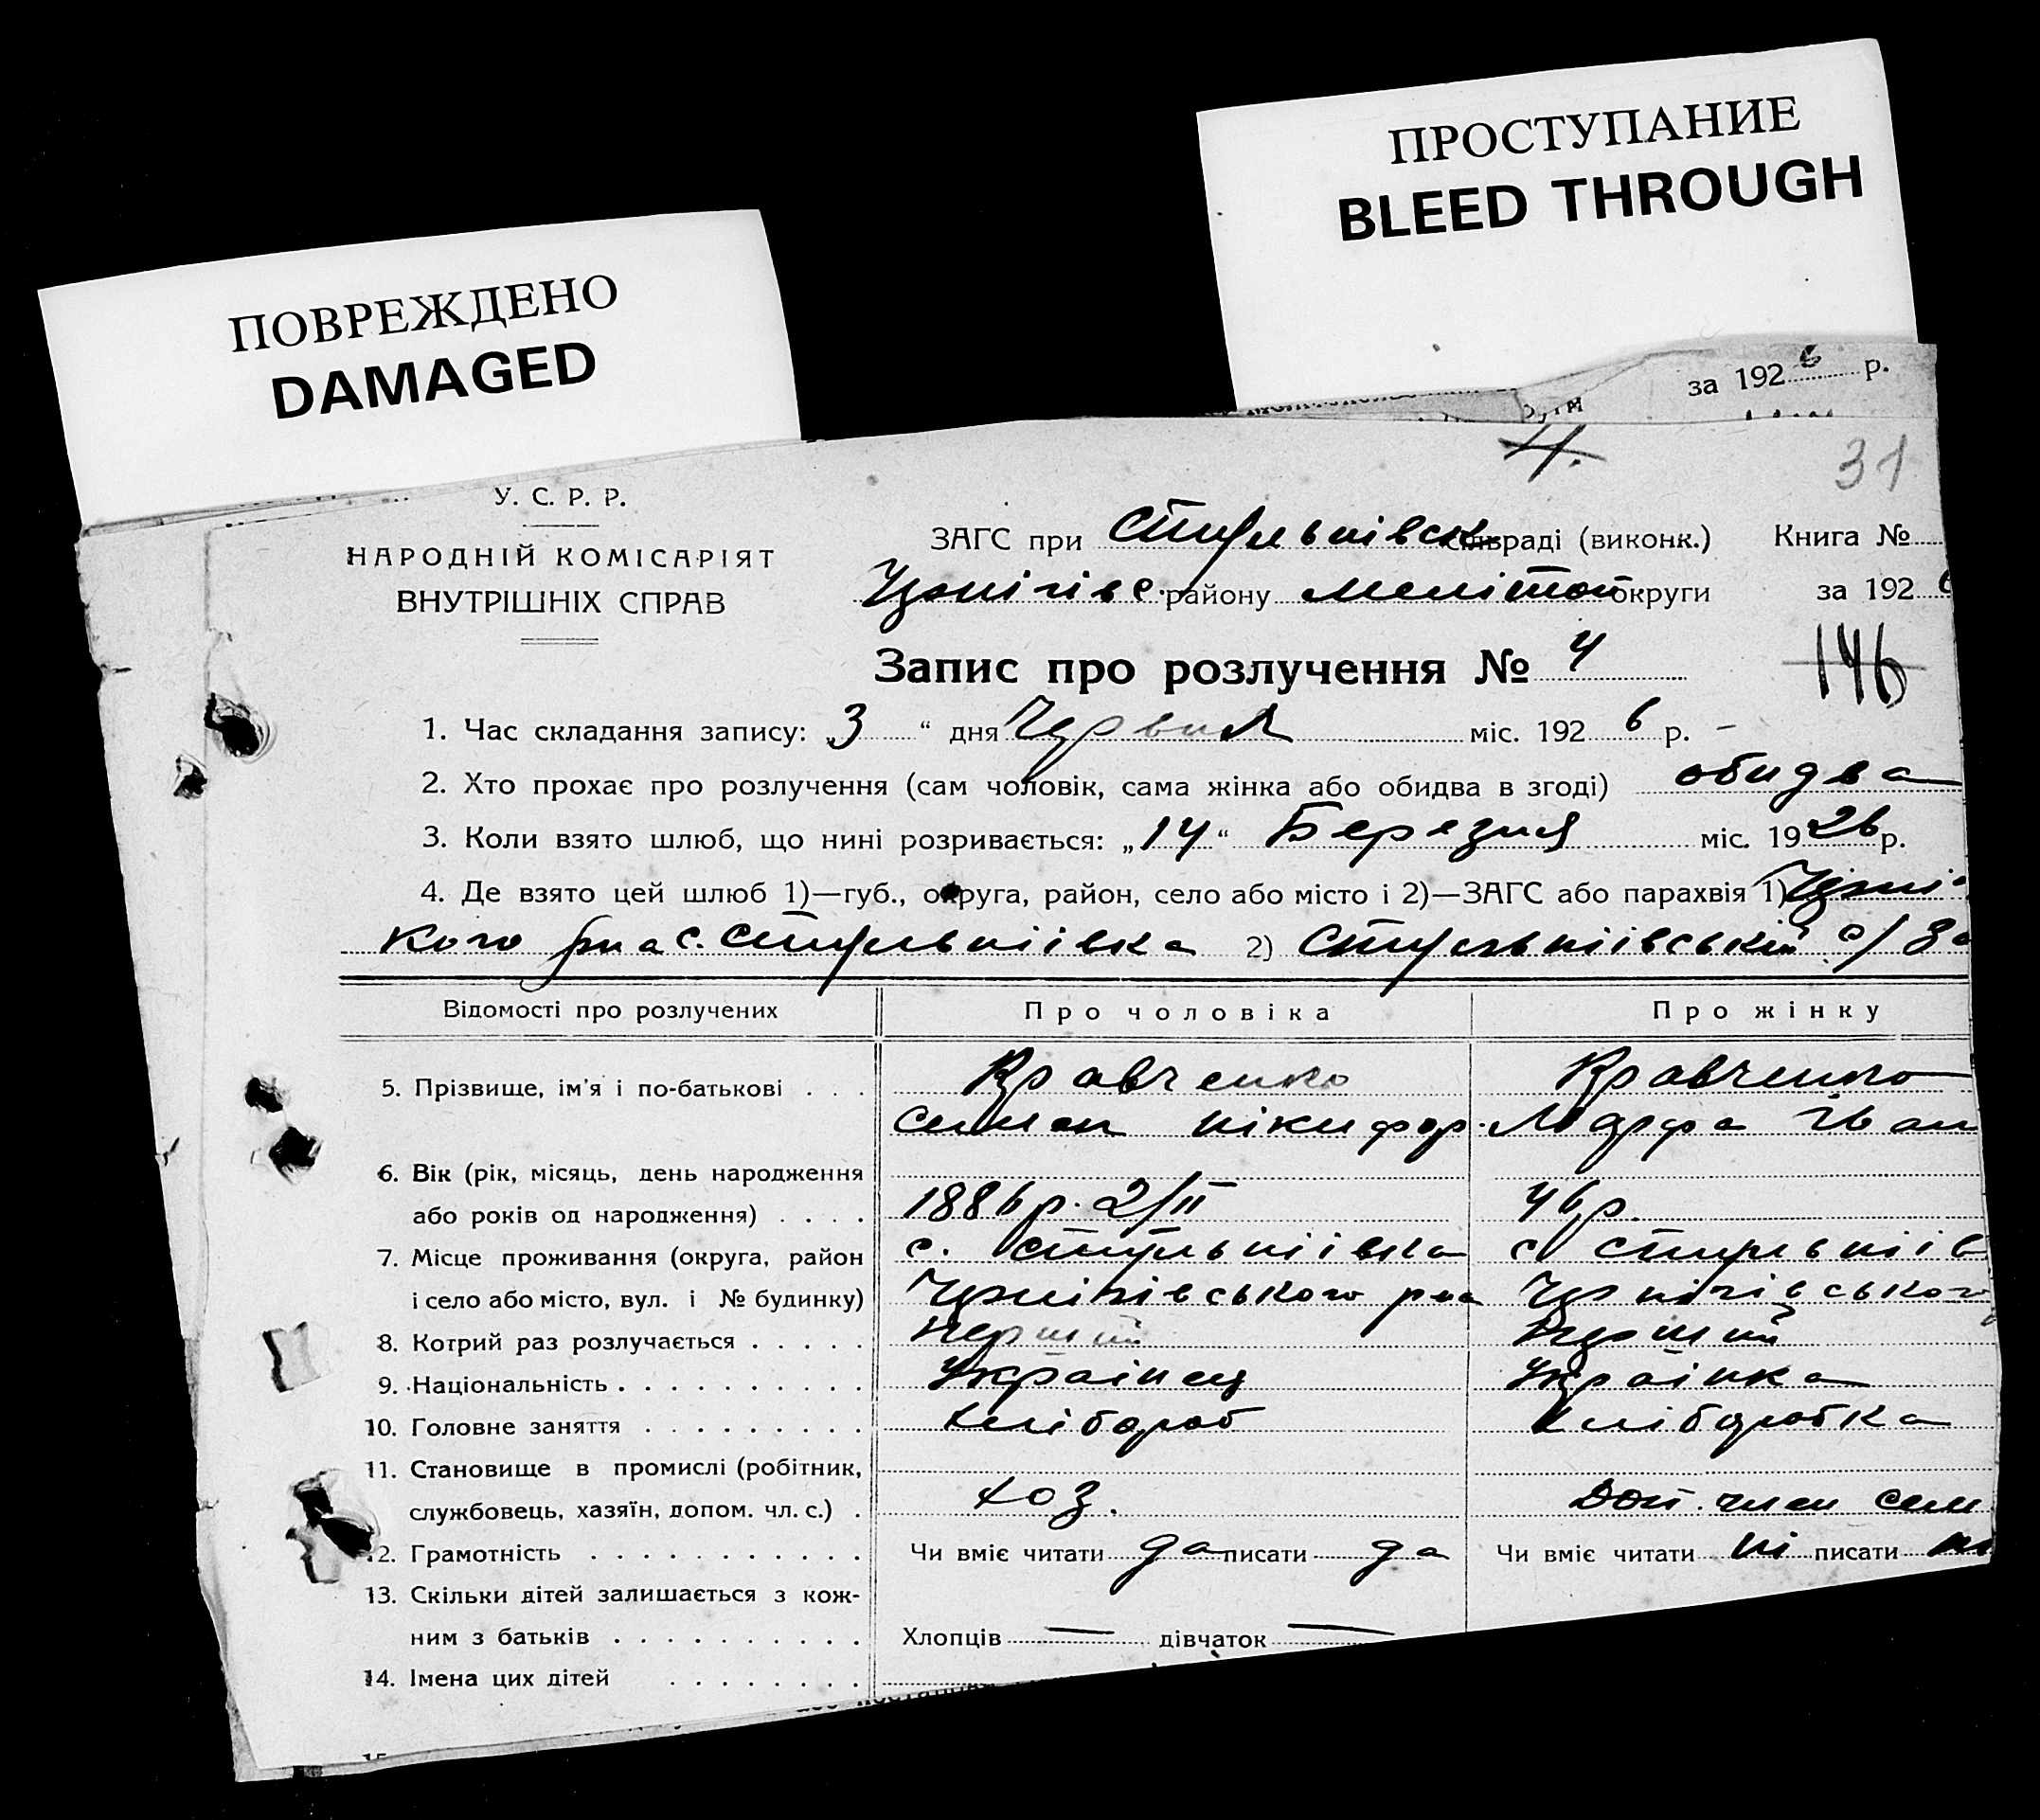 ПРОСТУПАНИЕ
BLEED THROUGH
ПОВРЕЖДЕНО
DAMAGED
за 1926 р.
4.
31
У. С. Р. Р.
НАРОДНІЙ КОМІСАРІЯТ
ВНУТРІШНІХ СПРАВ
ЗАГС при Стульнівськ сільраді (виконк.) Книга №
Чернігівс. району Мелітоп округи за 1926
Запис про розлучення № 4
146
1. Час складання запису: „3“ дня Червня міс. 1926 р. –
2. Хто прохає про розлучення (сам чоловік, сама жінка або обидва в згоді) обидва
3. Коли взято шлюб, що нині розривається: „14“ Березня міс. 1926 р.
4. Де взято цей шлюб 1)—губ., округа, район, село або місто і 2)—ЗАГС або парахвія 1) Черні
кого рна с. Стульніівка 2) Стульніівській с/
Відомості про розлучених Про чоловіка Про жінку
5. Прізвище, ім’я і по-батькові . . . Кравченко Кравченко
Семен Никифор. Марфа Іван
6. Вік (рік, місяць, день народження
або років од народження) . . . . 1886 р. 2/II 46 р.
7. Місце проживання (округа, район с. Стульніівка с. Стульніів
і село або місто, вул. і № будинку) Чернігівського рна Чернігівського
8. Котрий раз розлучається . . . . . Перший Перший
9. Національність . . . . . . . . . . Українец Українка
10. Головне заняття . . . . . . . . . Хлібороб Хліборобка
11. Становище в промислі (робітник,
службовець, хазяїн, допом. чл. с.) . хоз. Доп. член сем
12. Грамотність . . . . . . . . . . . Чи вміє читати да писати да Чи вміє читати ні писати ні
13. Скільки дітей залишається з кож-
ним з батьків . . . . . . . . . . Хлопців — дівчаток —
14. Імена цих дітей . . . . . . . .